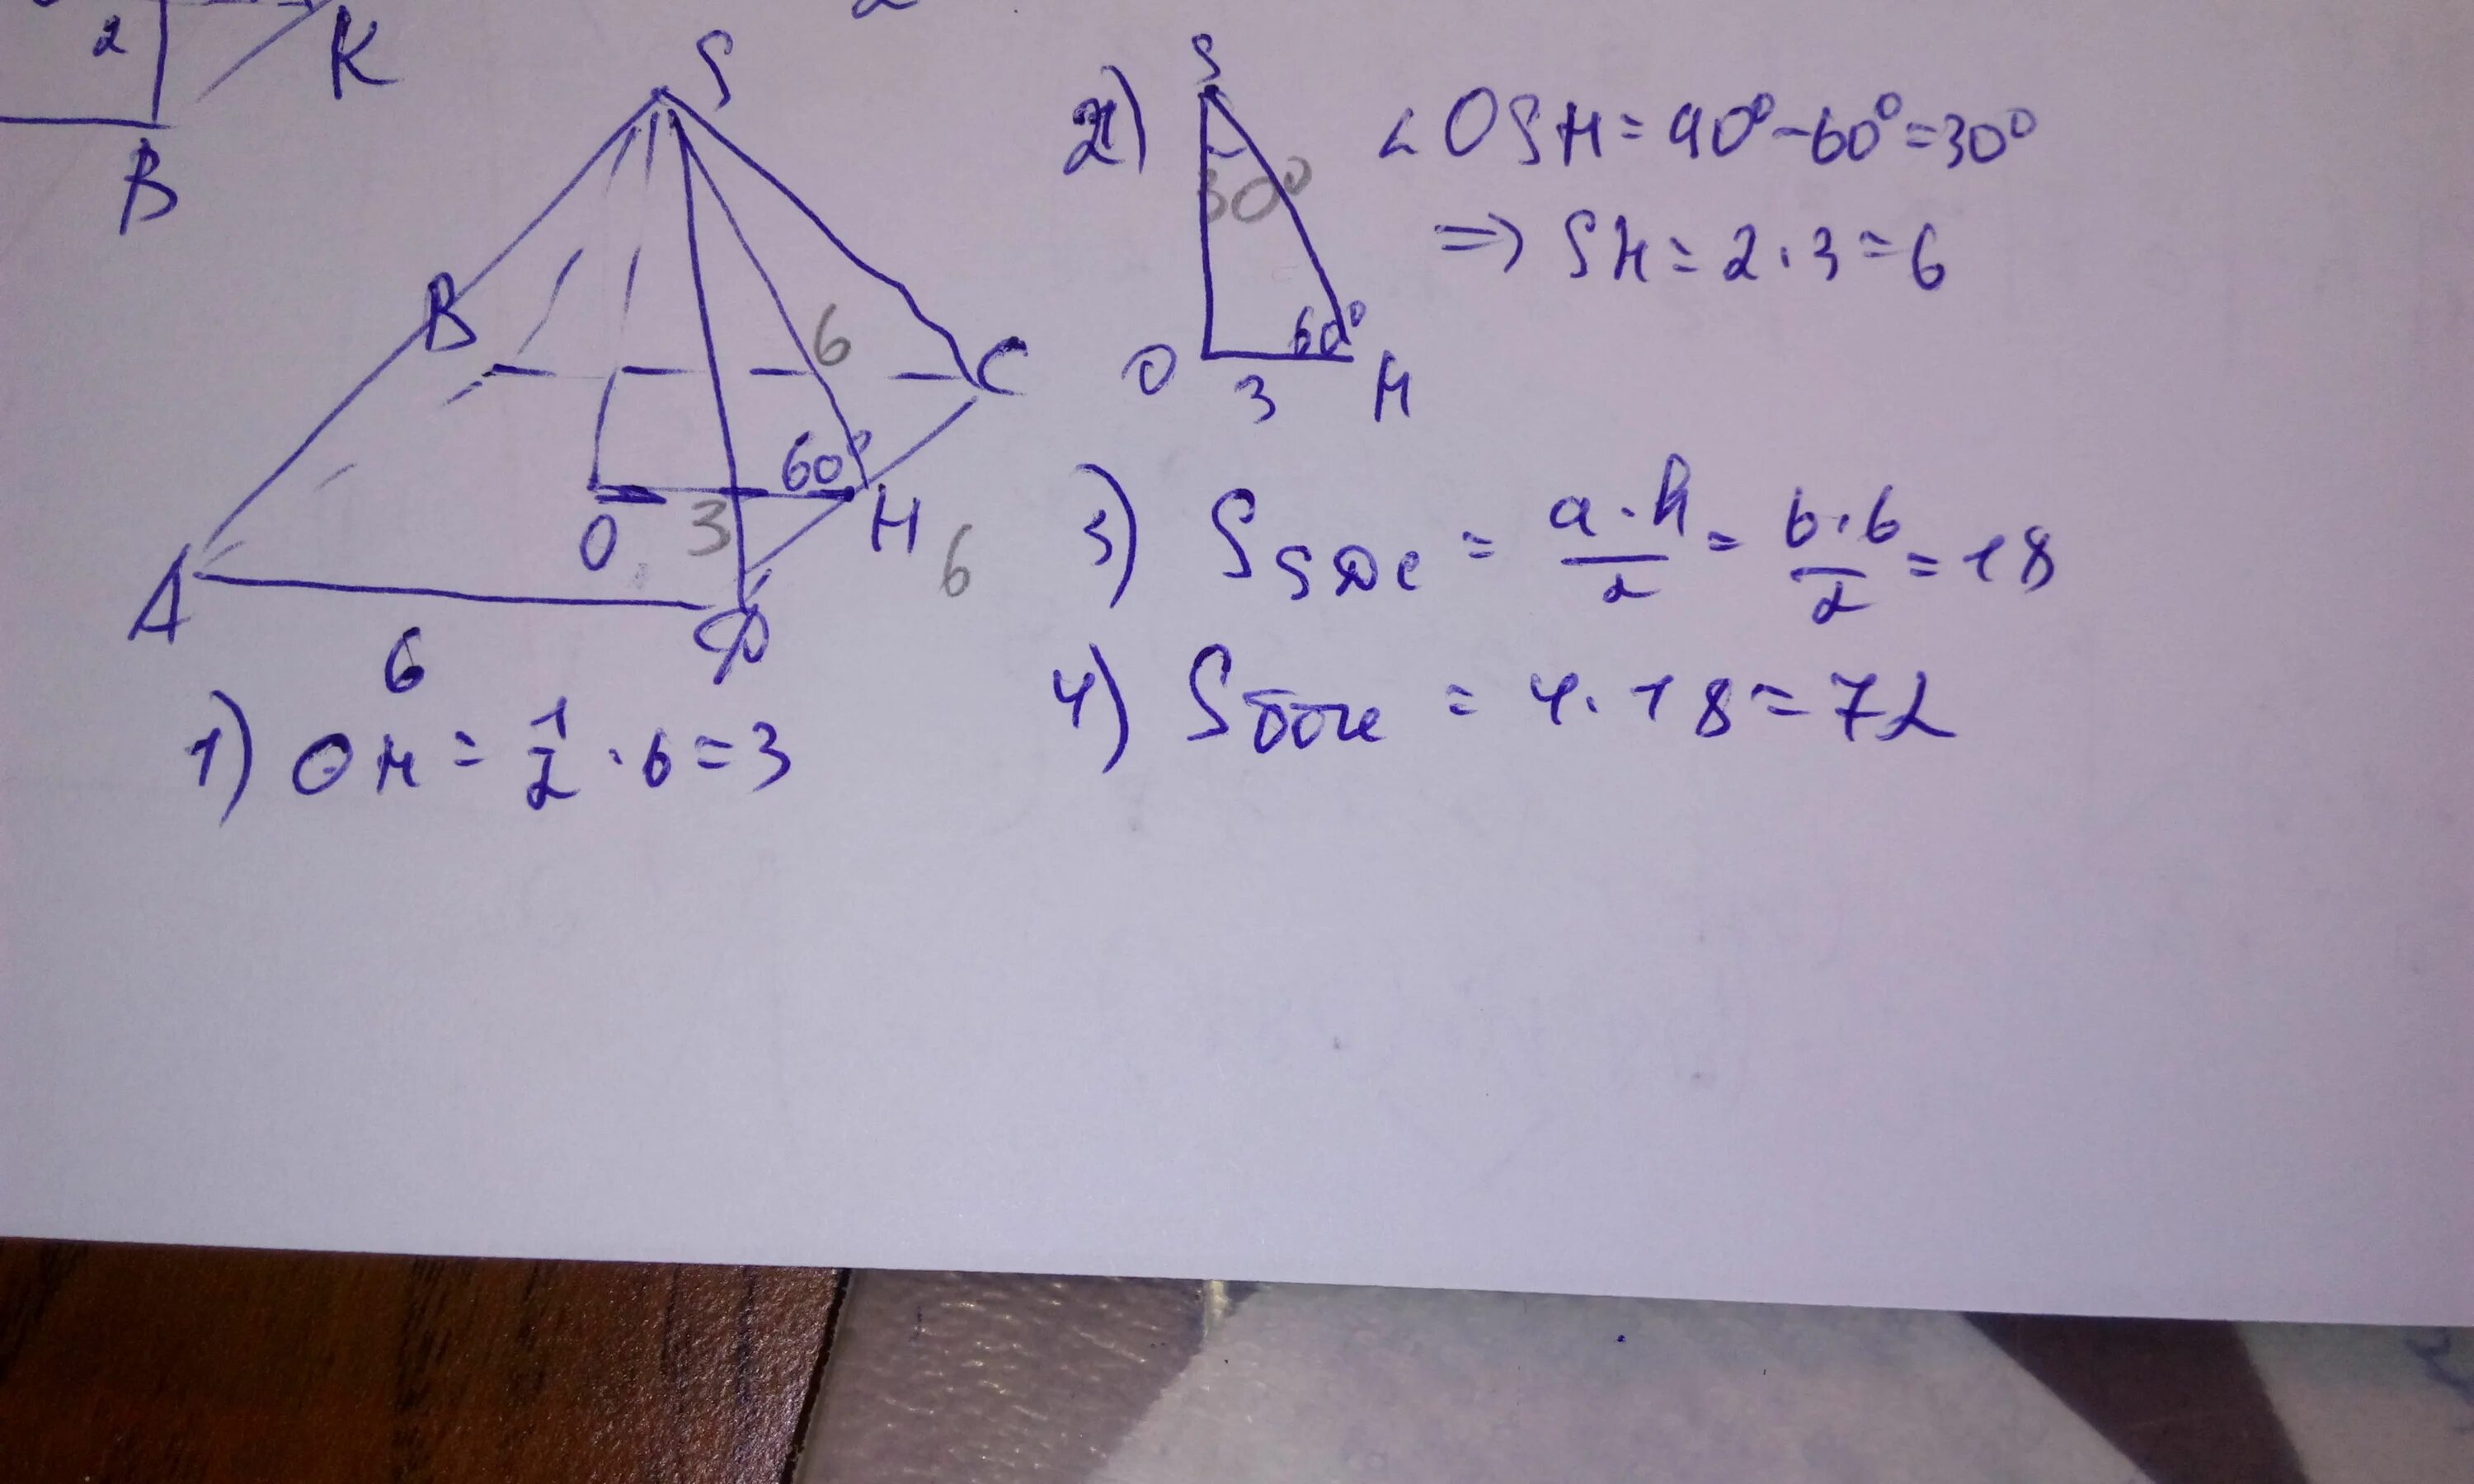 2
K
B
S
B
C
6
60°
O
3
H
6
A
D
6
1) OH = 1/2 · 6 = 3
2)
S
30°
60°
O
3
H
∠OSH = 90° - 60° = 30°
=> SH = 2 · 3 = 6
3) S SDC = a · h / 2 = 6 · 6 / 2 = 18
4) S бок = 4 · 18 = 72